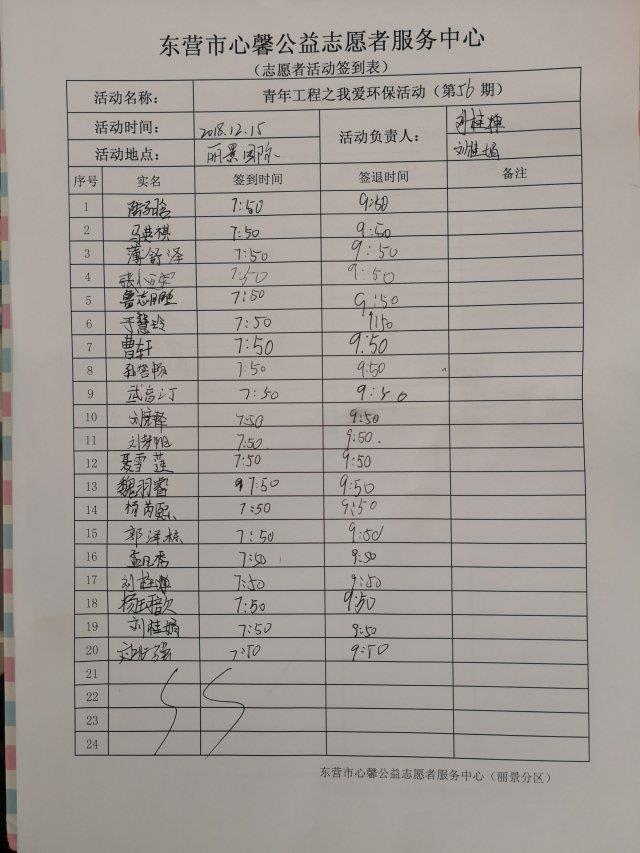 东营市心馨公益志愿者服务中心
（志愿者活动签到表）
活动名称： 青年工程之我爱环保活动（第56期）
活动时间： 2018.12.15 活动负责人：
活动地点： 丽景国际 刘桂娟
序号 实名 签到时间 签退时间 备注
1 7:50 9:50
2 马英祺 7:50 9:50
3 薄舒泽 7:50 9:50
4 7:50 9:50
5 7:50 9:50
6 于慧玲 7:50 9:50
7 曹轩 7:50 9:50
8 7:50 9:50
9 7:50 9:50
10 7:50 9:50
11 7:50. 9:50.
12 聂雪莲 7:50 9:50
13 魏羽睿 7:50 9:50
14 7:50 9:50
15 郭泽栋 7:50 9:50
16 7:50 9:50
17 7:50 9:50
18 7:50 9:50
19 刘桂娟 7:50 9:50
20 7:50 9:50
21
22
23
24
东营市心馨公益志愿者服务中心（丽景分区）